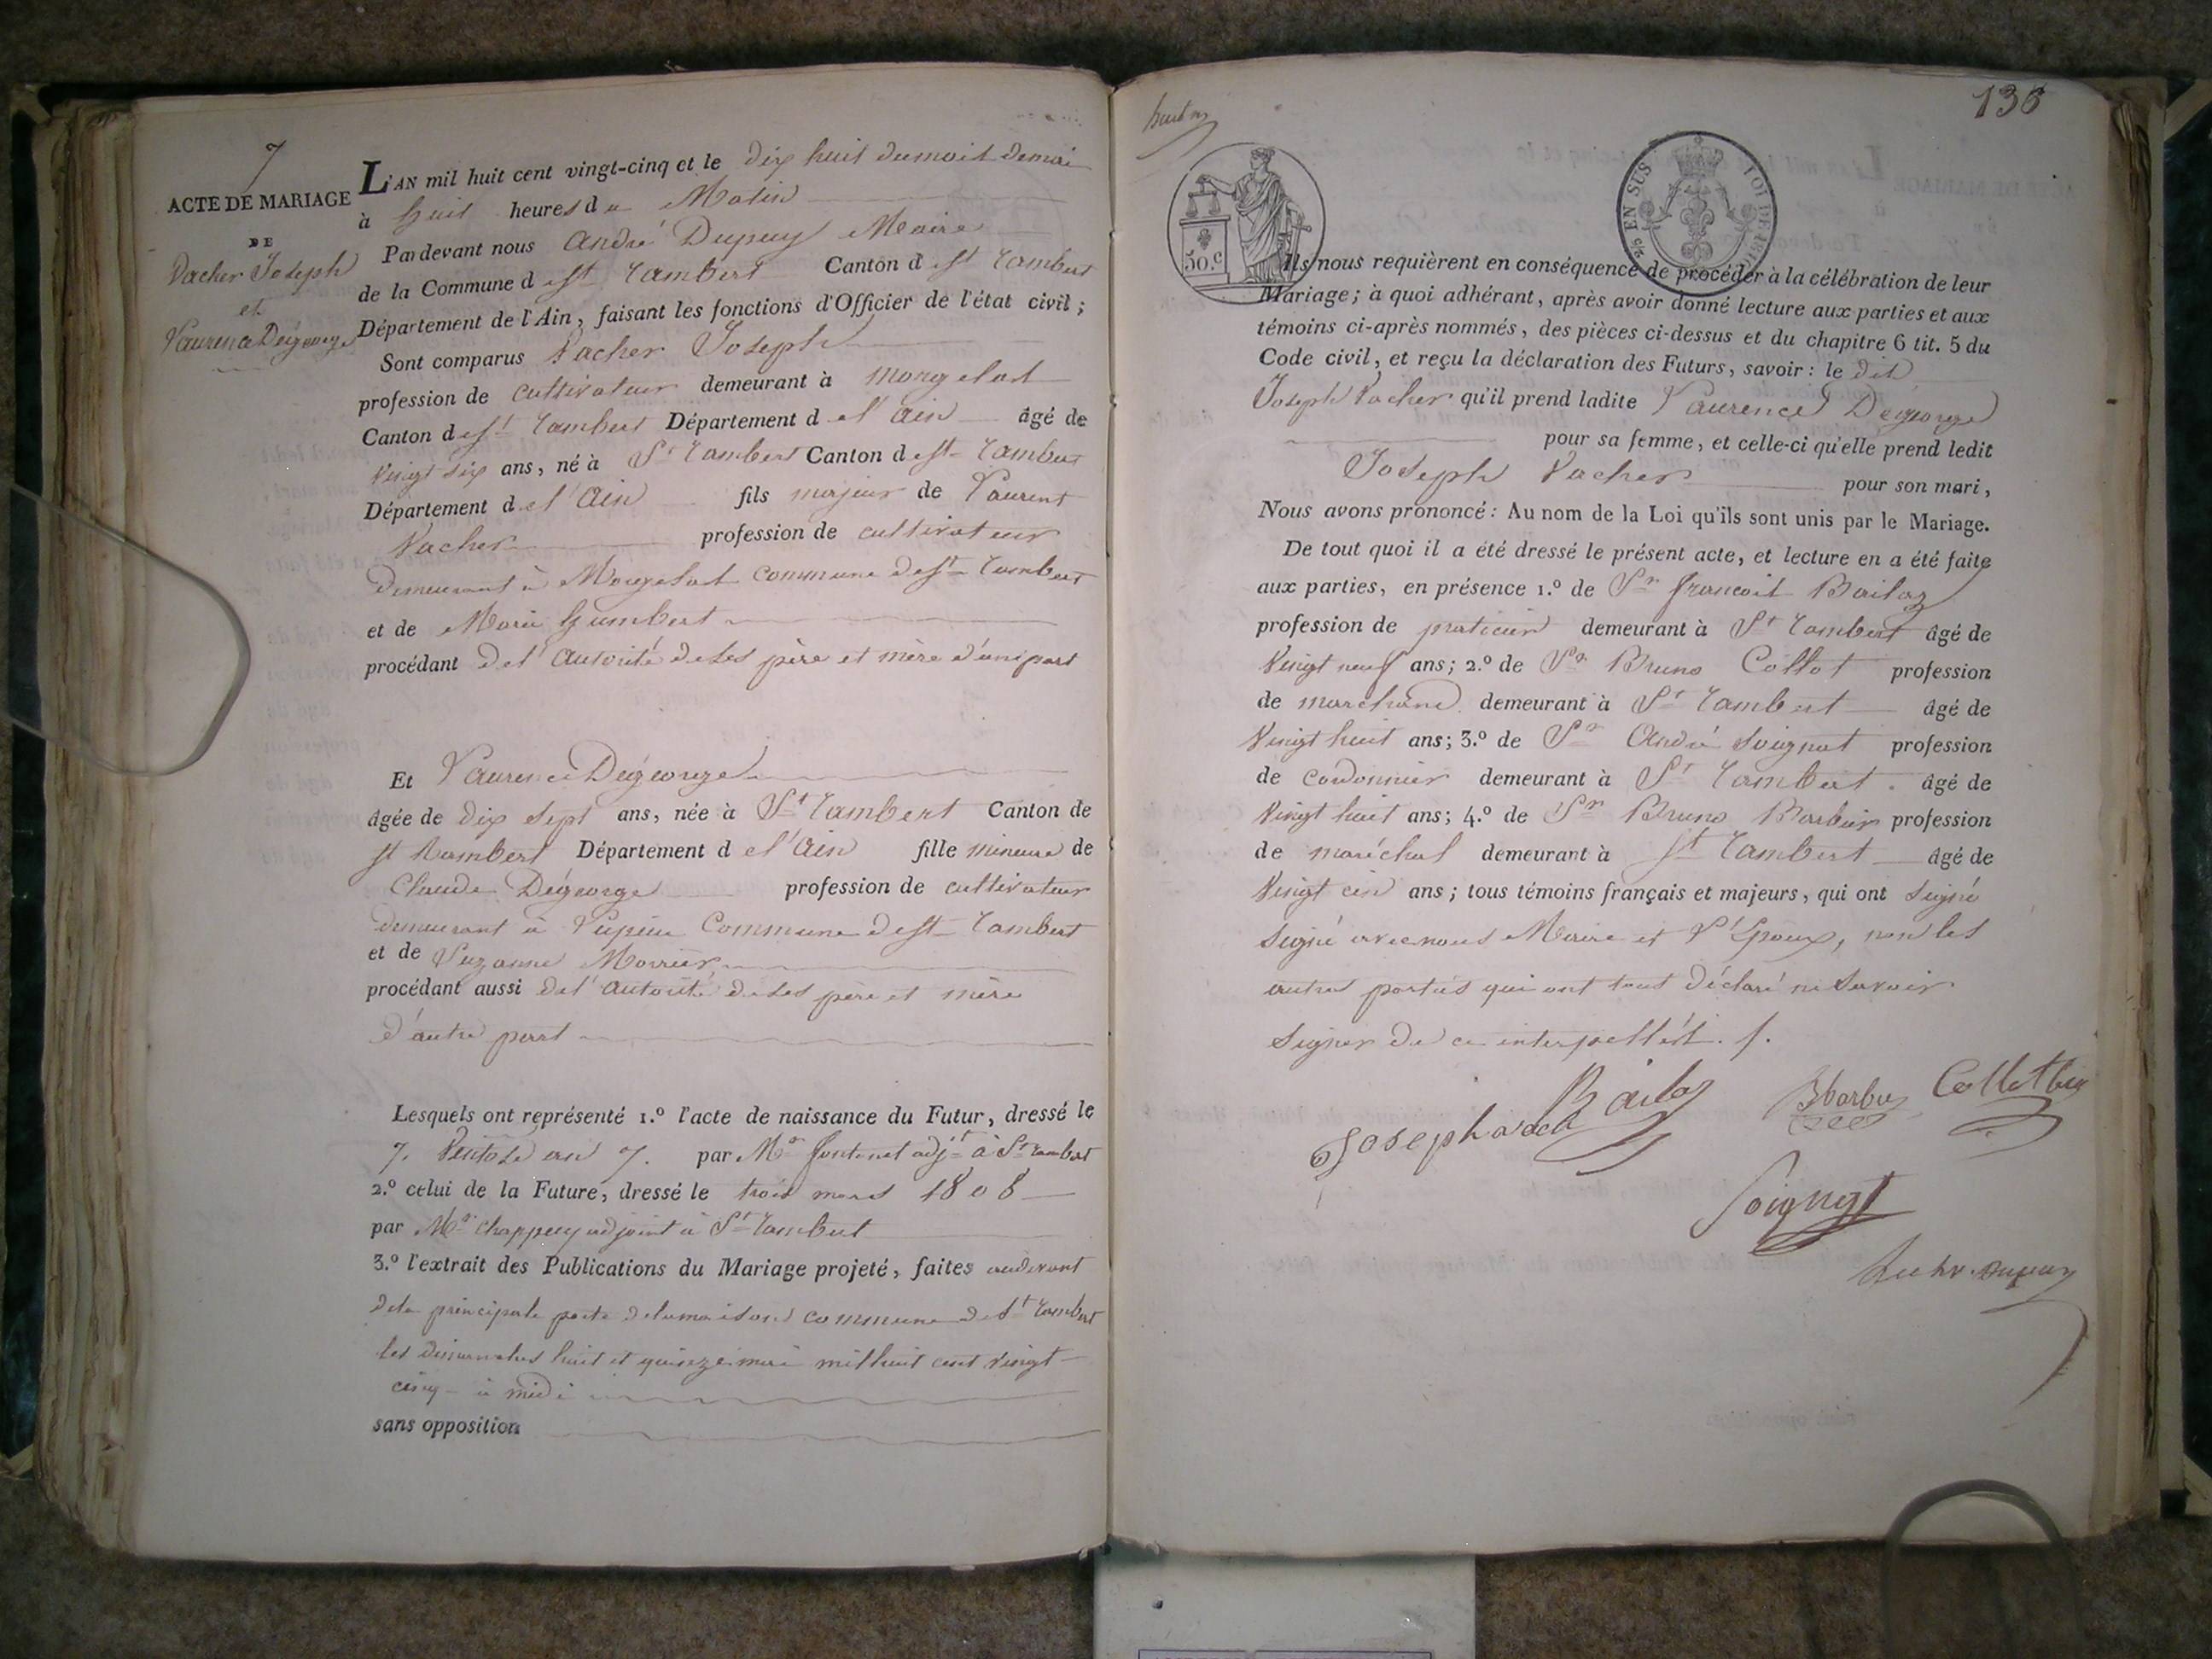 7
ACTE DE MARIAGE
DE
Vacher Joseph
et
Laurence Degeorge
L'AN mil huit cent vingt-cinq et le dix huit du mois de mai
à huit heures du Matin
Pardevant nous André Dupuy Maire
de la Commune de St Rambert Canton de St Rambert
Département de l'Ain, faisant les fonctions d'Officier de l'état civil ;
Sont comparus Vacher Joseph
profession de cultivateur demeurant à Mongelat
Canton de St Rambert Département de l'Ain âgé de
vingt six ans, né à St Rambert Canton de St Rambert
Département de l'Ain fils majeur de Laurent
Vacher profession de cultivateur
demeurant à Mongelat commune de St Rambert
et de Marie humbert
procédant de l'autorité de ses père et mère d'une part
Et Laurence Degeorge
âgée de dix sept ans, née à St Rambert Canton de
St Rambert Département de l'Ain fille mineure de
Claude Degeorge profession de cultivateur
demeurant à Lupieu Commune de St Rambert
et de Suzanne
procédant aussi de l'autorité de ses père et mère
d'autre part
Lesquels ont représenté 1.º l'acte de naissance du Futur, dressé le
7. Ventose an 7. par Mr fontenet adjt à St rambert
2.º celui de la Future, dressé le trois mars 1808
par Mr Chappuy adjoint à St Rambert
3.º l'extrait des Publications du Mariage projeté, faites audevant
de la principale porte de la maison commune de St Rambert
les dimanches huit et quinze mai mil huit cent vingt
cinq à midi
sans opposition
136
50.c
EN SUS
LOI DE 1816
Ils nous requièrent en conséquence de procéder à la célébration de leur
Mariage ; à quoi adhérant, après avoir donné lecture aux parties et aux
témoins ci-après nommés, des pièces ci-dessus et du chapitre 6 tit. 5 du
Code civil, et reçu la déclaration des Futurs, savoir : le dit
Joseph Vacher qu'il prend ladite Laurence Degeorge
pour sa femme, et celle-ci qu'elle prend ledit
Joseph Vacher pour son mari,
Nous avons prononcé : Au nom de la Loi qu'ils sont unis par le Mariage.
De tout quoi il a été dressé le présent acte, et lecture en a été faite
aux parties, en présence 1.º de Sr francois Bailaz
profession de praticien demeurant à St Rambert âgé de
vingt neuf ans ; 2.º de Sr Bruno Collot profession
de marchand demeurant à St Rambert âgé de
vingt huit ans ; 3.º de Sr André Soignat profession
de cordonnier demeurant à St Rambert âgé de
vingt huit ans ; 4.º de Sr Bruno Barbier profession
de maréchal demeurant à St Rambert âgé de
vingt cin ans ; tous témoins français et majeurs, qui ont signé
signé avec nous Maire et l'Epoux, non les
autres parties qui ont tous déclaré ne savoir
signer de ce interpellés.
Bailaz
Joseph vacher
Soignat
Dupuy